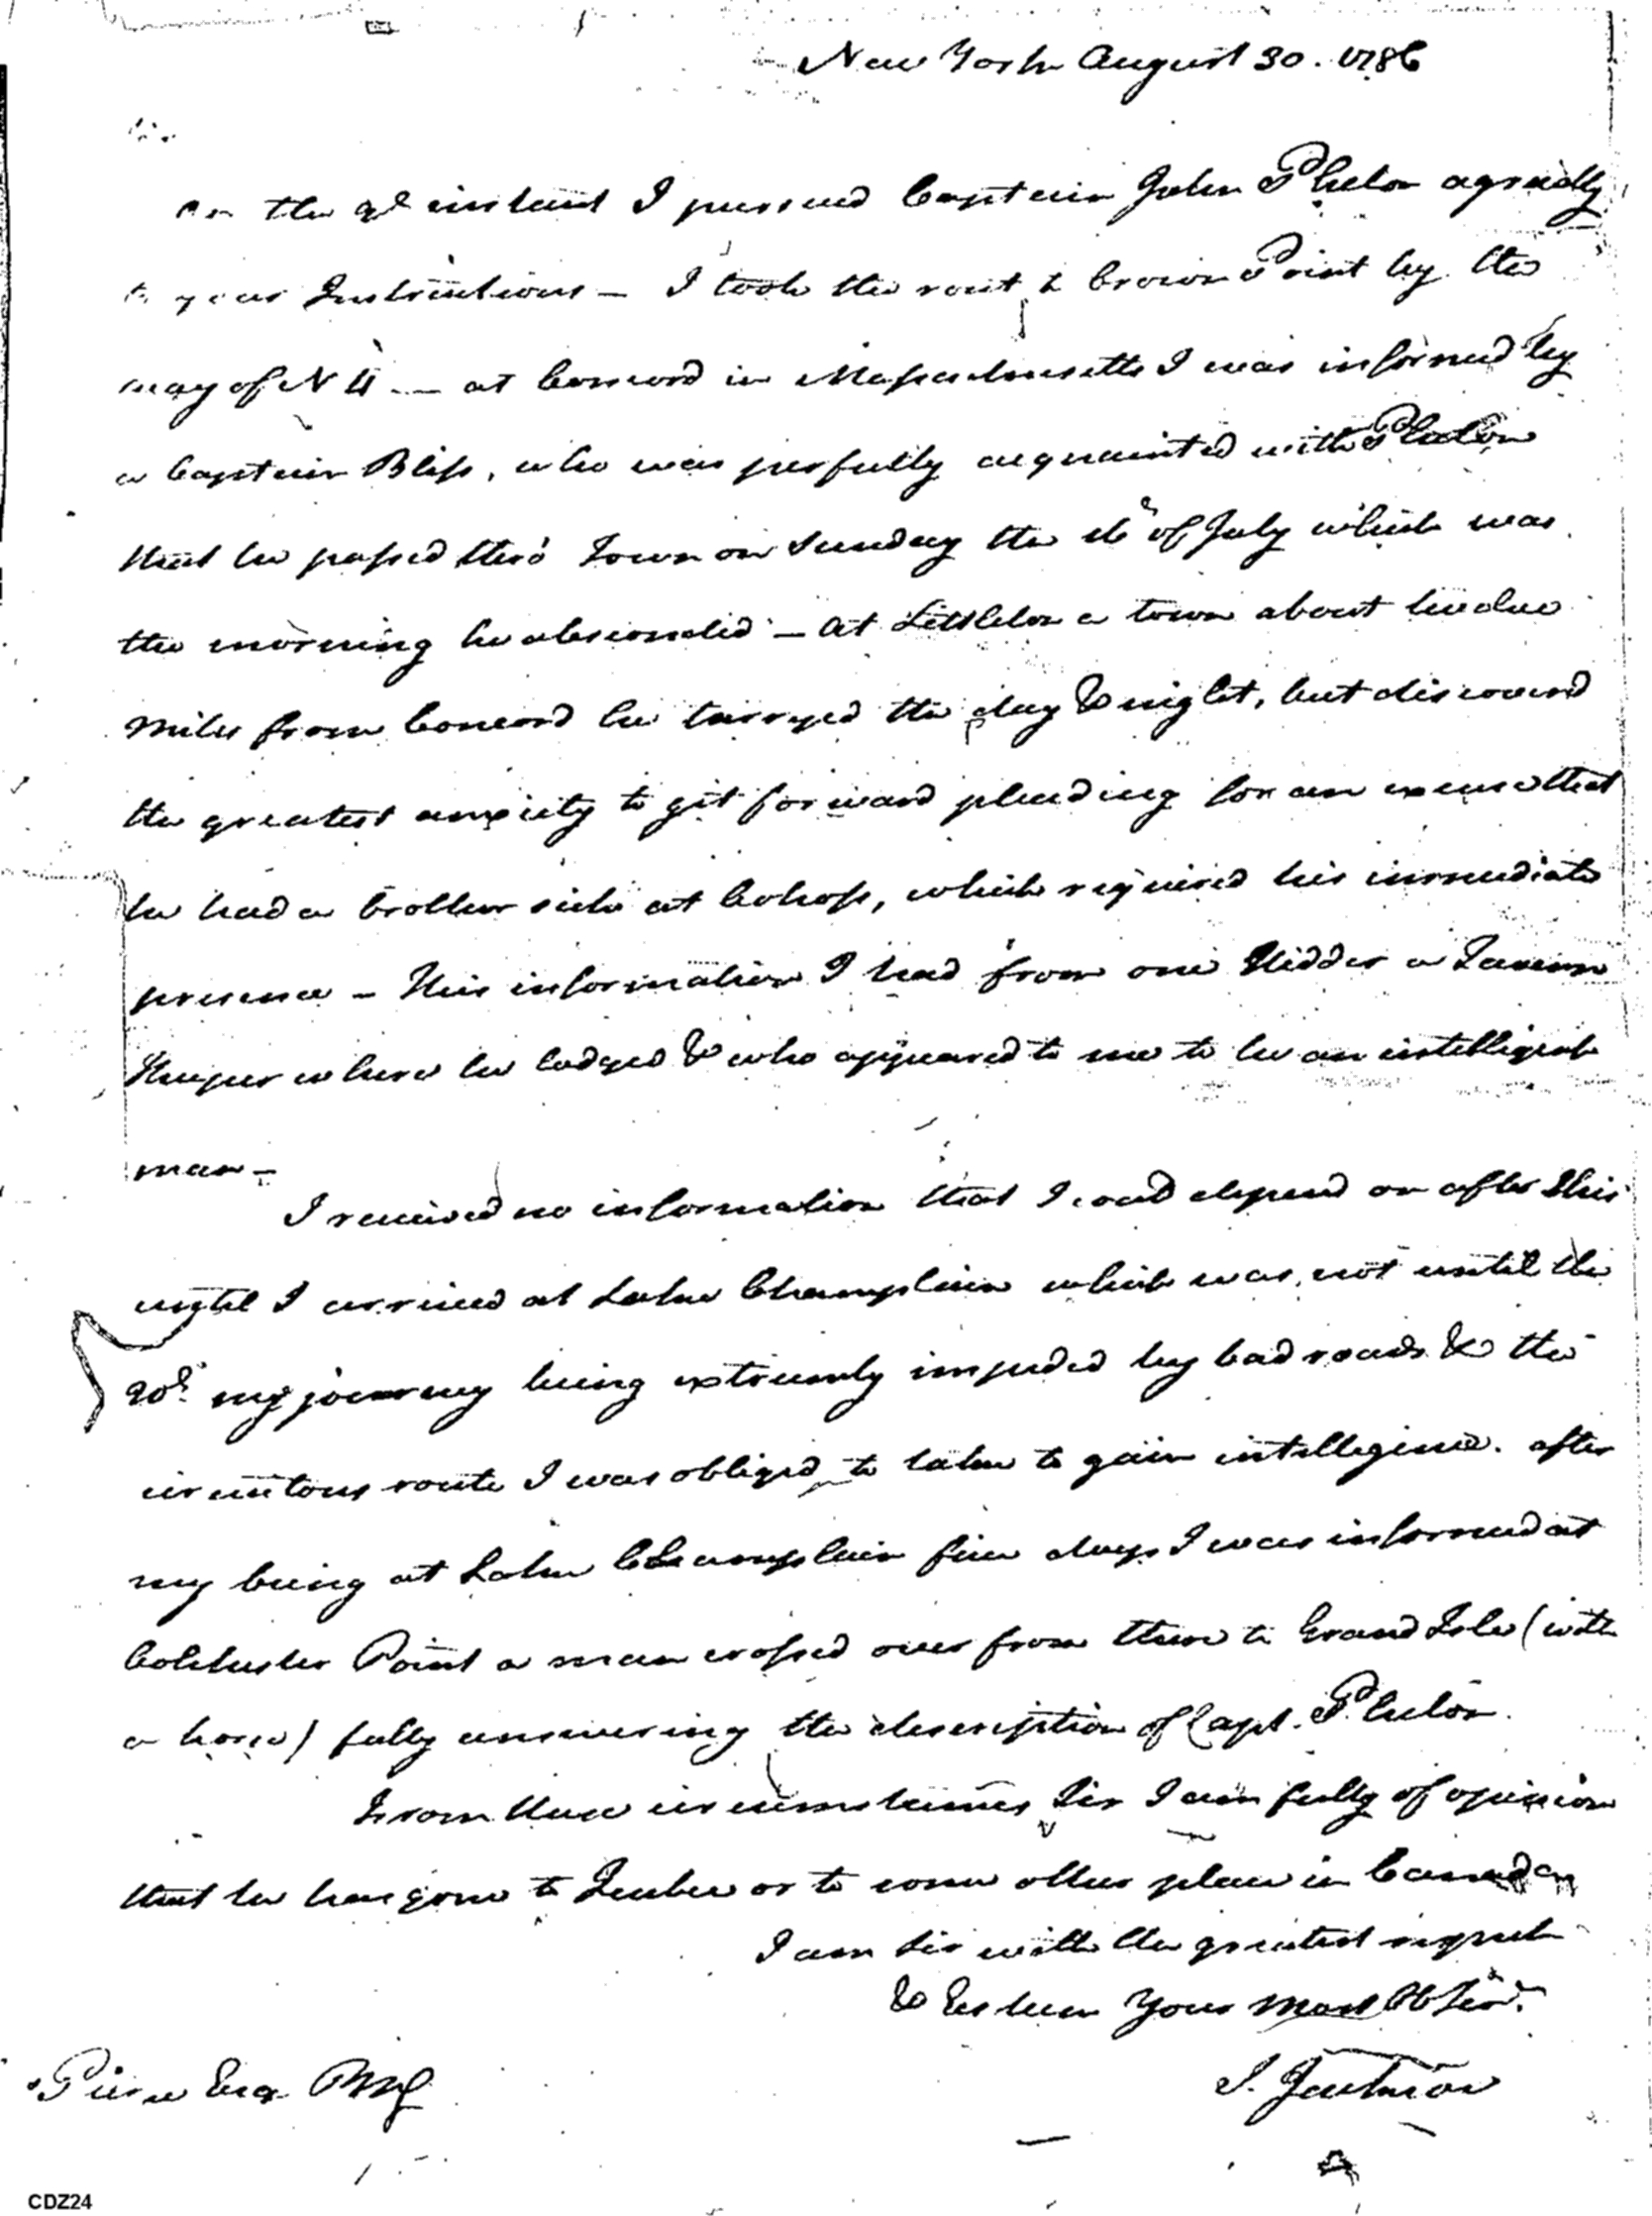 New York August 30. 1786
Sir
on the 9th instant I pursued Captain John Phelon agreeably
to your Instructions — I took the rout to Crown Point by the
way of N H — at Concord in Massachusetts I was informed by
a Captain Bliss, who was perfectly acquainted with Phelon
that he passed thro' Town on Sunday the of July which was
the morning he absconded — At Littleton a town about twelve
miles from Concord he tarryed the day & night, but discovered
the greatest anxiety to git forward pleading for an excuse that
he had a brother sick at Cohoss, which required his immediate
presence — This information I had from one Kidder a Tavern
Keeper where he lodged & who appeared to me to be an intelligent
man —
I received no information that I coud depend on after this
until I arrived at Lake Champlain which was not until the
20th my journey being extremely impeded by bad roads & the
circuitous route I was obliged to take to gain intelligence. after
my being at Lake Champlain five days I was informed at
Colchester Point a man crossed over from there to Grand Isle (with
a horse) fully answering the description of Capt. Phelon.
From these circumstances Sir I am fully of opinion
that he has gone to Quebec or to some other place in Canada
I am Sir with the greatest respect
& Esteem Your most Ob Serv.t
J.
Pierce Esq PMG
CDZ24